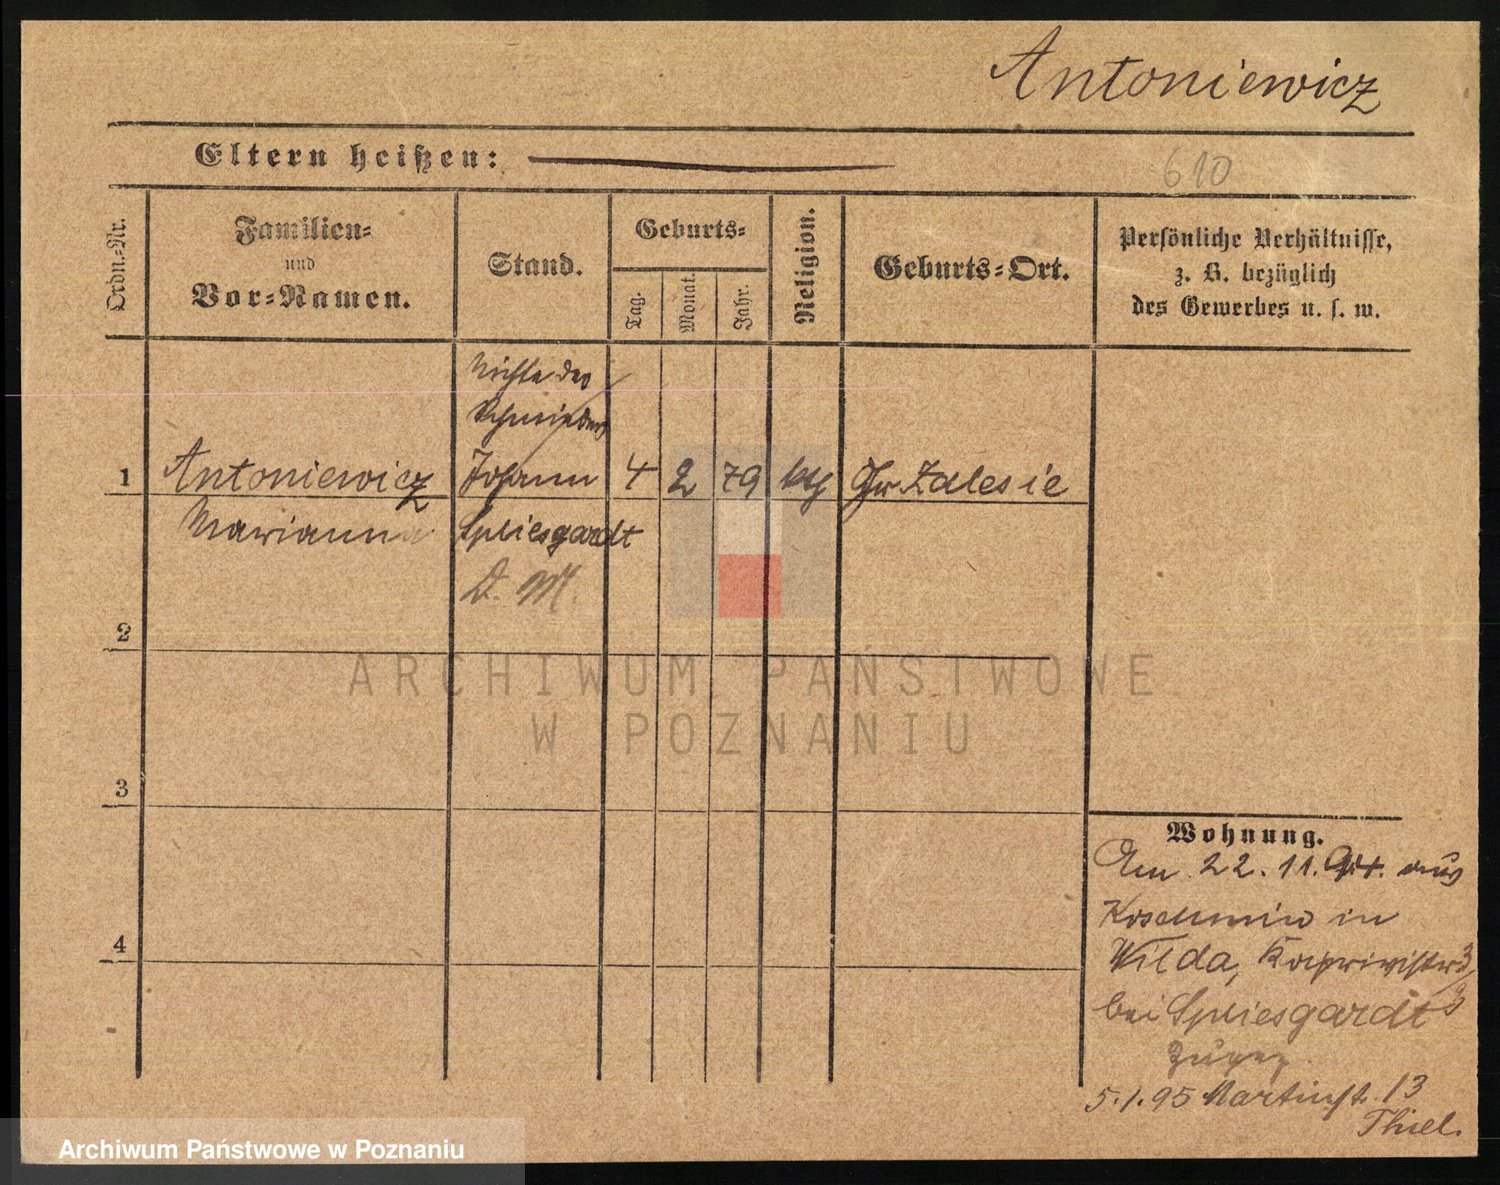 Antoniewicz
Eltern heißen:
610
Ordn.-Nr.
Familien-
und
Vor-Namen.
Stand.
Geburts-
Tag.
Monat.
Jahr.
Religion.
Geburts-Ort.
Persönliche Verhältnisse,
z. B. bezüglich
des Gewerbes u. s. w.
Nichte des
Schmiedes
1 Antoniewicz Johann 4 2 79 kth Gr Zalesie
Marianna Spliesgardt
D. M.
2
ARCHIWUM PAŃSTWOWE
W POZNANIU
3
Wohnung.
Am 22. 11. 94. aus
Koschmin in
4
Wilda, Kaprivistr 3
bei Spliesgardt
zugez.
5.1.95 Martinst. 13
Thiel.
Archiwum Państwowe w Poznaniu